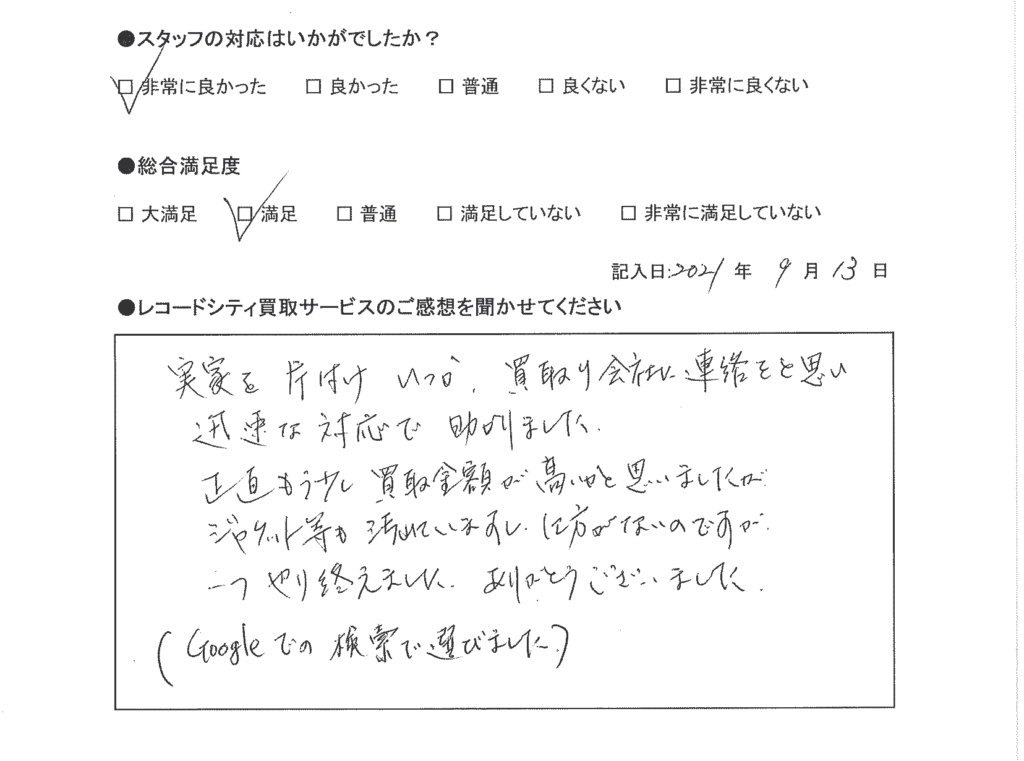 ●スタッフの対応はいかがでしたか？
□ 非常に良かった □ 良かった □ 普通 □ 良くない □ 非常に良くない
●総合満足度
□ 大満足 □ 満足 □ 普通 □ 満足していない □ 非常に満足していない
記入日:2021 年 9 月 13 日
●レコードシティ買取サービスのご感想を聞かせてください
実家を 片付け いつか、買取り会社に連絡をと思い
迅速な対応で 助かりました。
正直もう少し 買取金額が高いかと思いましたが
ジャケット等も 汚れていますし、仕方がないのですが、
一つ やり終えました。ありがとうございました。
(Googleでの 検索で選びました。)